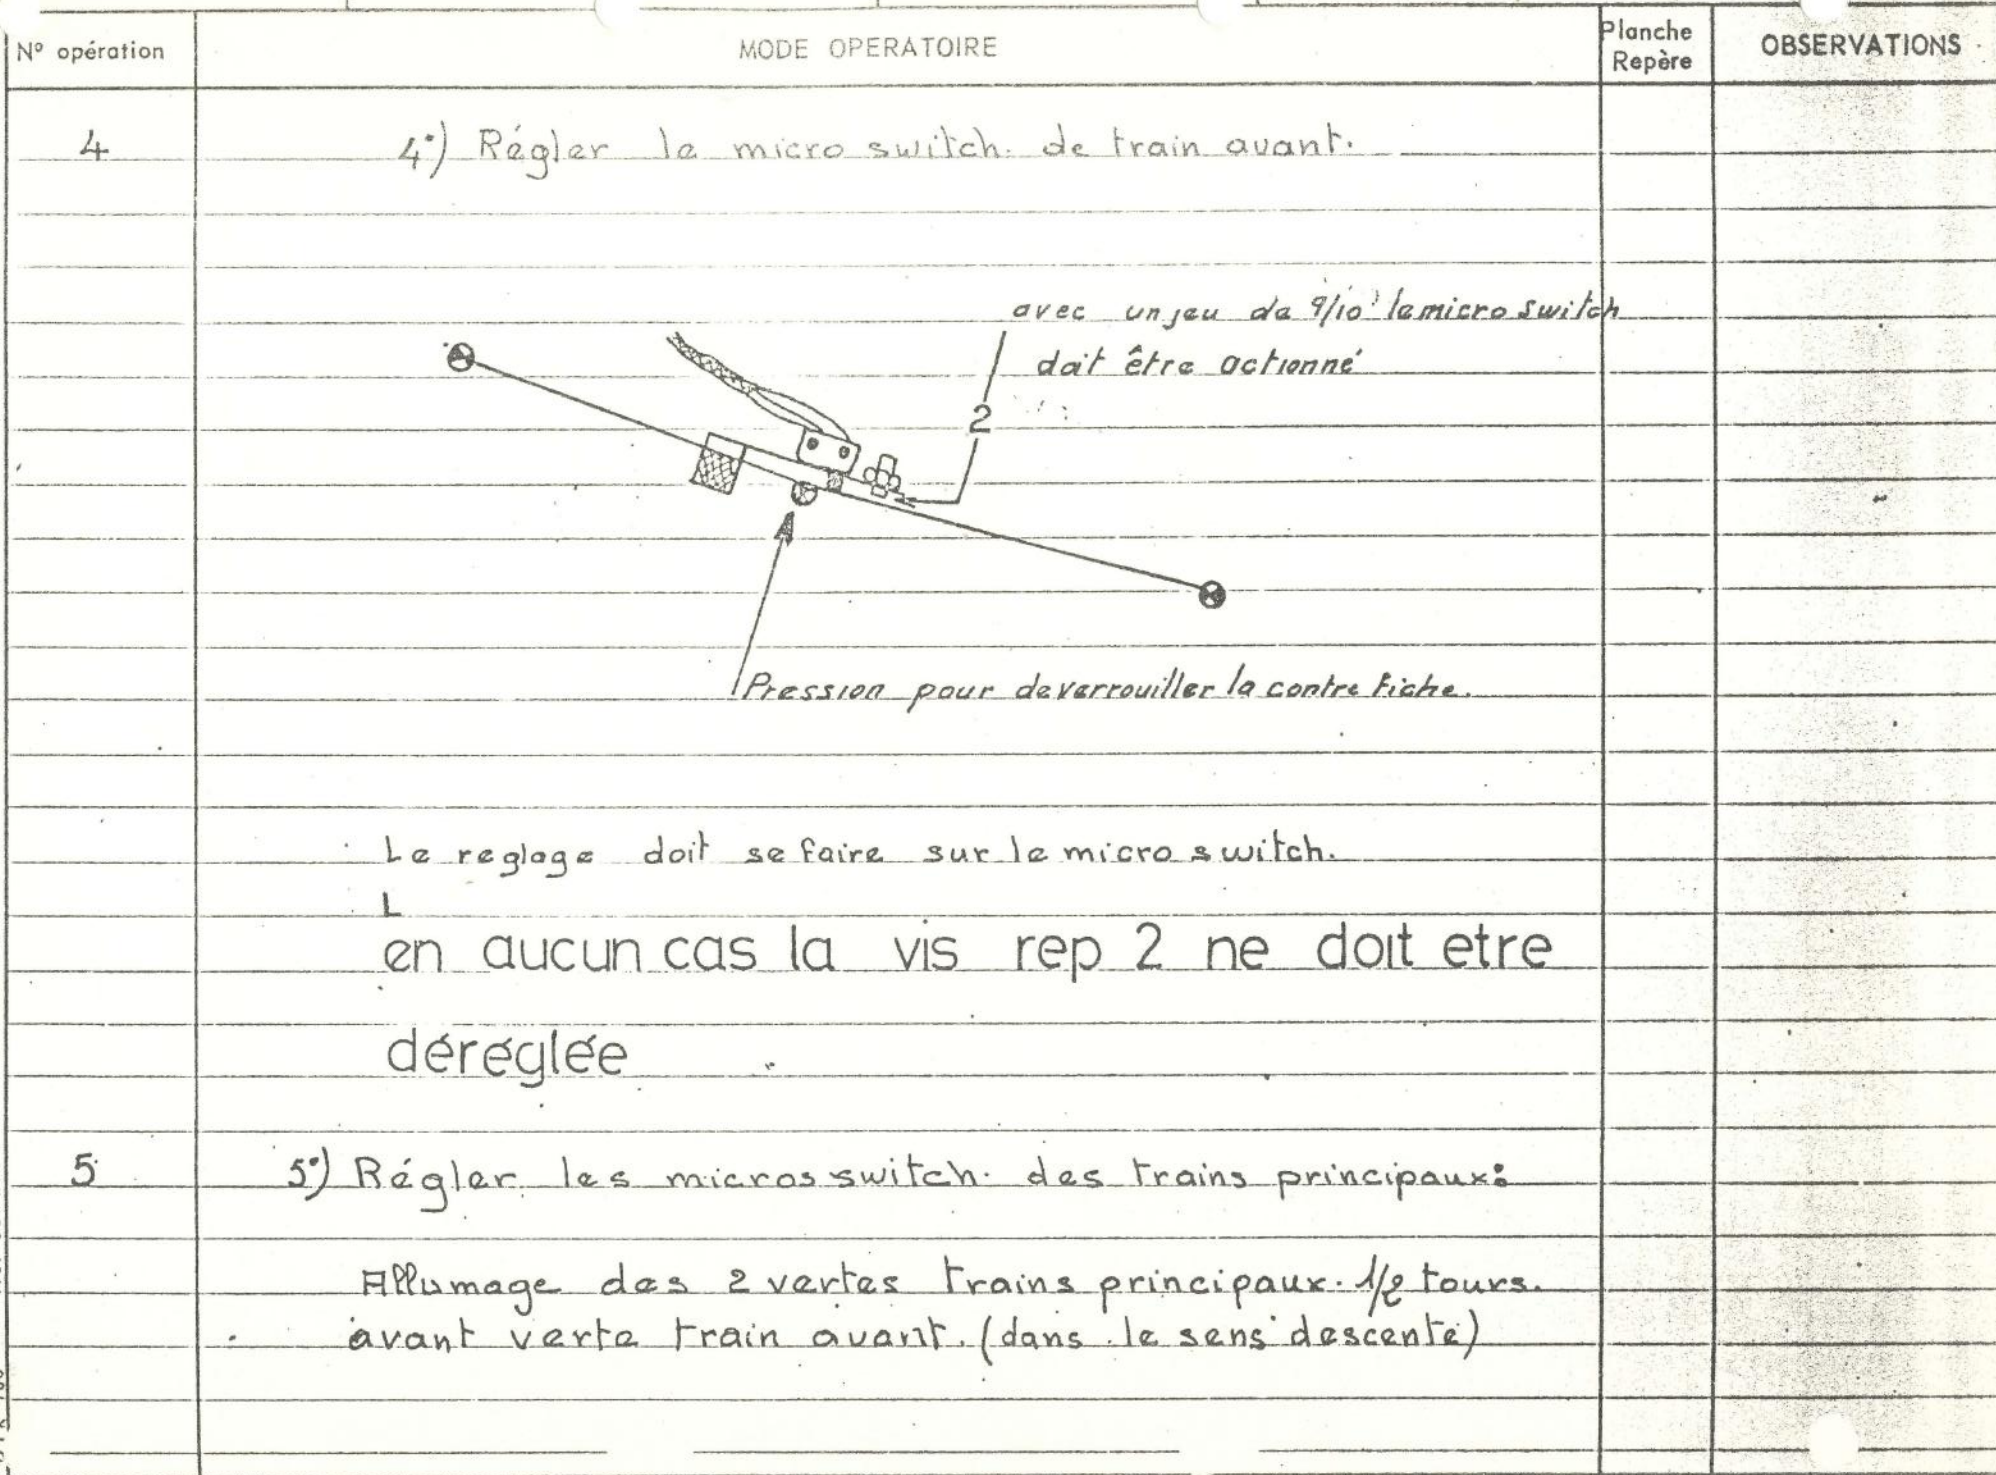 N° opération
MODE OPERATOIRE
Planche
Repère
OBSERVATIONS
4
4°) Régler le micro switch. de train avant.
avec un jeu de 9/10 le micro switch
doit être actionné
2
Pression pour deverrouiller la contre fiche.
Le reglage doit se faire sur le micro switch.
L
en aucun cas la vis rep 2 ne doit etre
déréglée
5
5°) Régler les micros switch. des trains principaux:
Allumage des 2 vertes trains principaux. 1/2 tours.
avant verte train avant. (dans le sens descente)